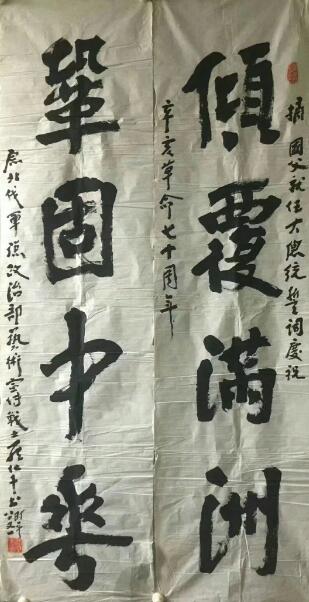 摘國父就任大總統誓詞慶祝
傾覆滿洲
辛亥革命七十周年
鞏固中華
原北伐軍總政治部藝術宣傳戰士